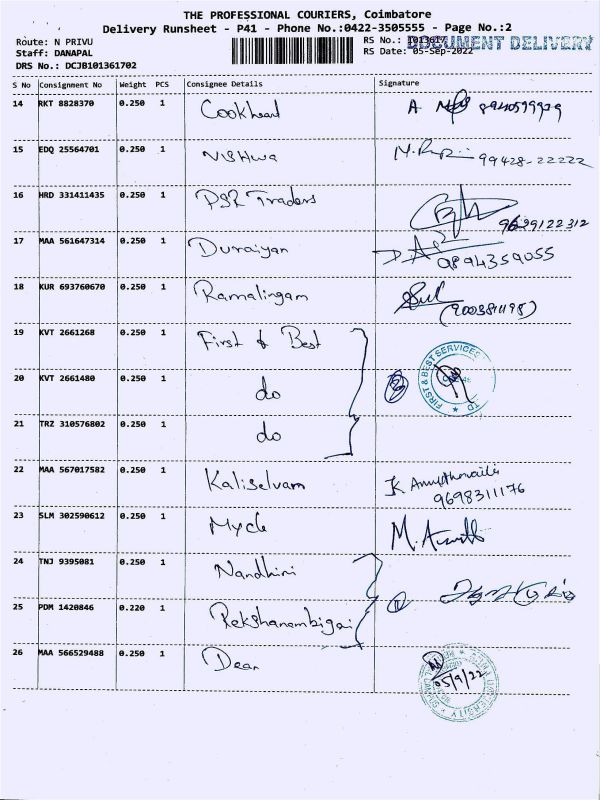 THE PROFESSIONAL COURIERS, Coimbatore
Delivery Runsheet - P41 - Phone No.:0422-3505555 - Page No.:2
Route: N PRIVU
RS No.: 1013617 DOCUMENT DELIVERY
Staff: DANAPAL
RS Date: 05-Sep-2022
DRS No.: DCJB101361702
S No Consignment No Weight PCS Consignee Details Signature
14 RKT 8828370 0.250 1 Cookheard A
15 EDQ 25564701 0.250 1 Vishwa 99428-22222
16 HRD 331411435 0.250 1 PSR Traders 9629122312
17 MAA 561647314 0.250 1 Duraiyan 9894359055
18 KUR 693760670 0.250 1 Ramalingam (9003811198)
19 KVT 2661268 0.250 1 First & Best
FIRST & BEST SERVICES LTD
20 KVT 2661480 0.250 1 do
21 TRZ 310576802 0.250 1 do
22 MAA 567017582 0.250 1 Kaliselvam K 9698311176
23 SLM 302590612 0.250 1 Mycle M.
24 TNJ 9395081 0.250 1 Nandhini
25 PDM 1420846 0.220 1 Rekshanambigai
26 MAA 566529488 0.250 1 Dean 05/9/22